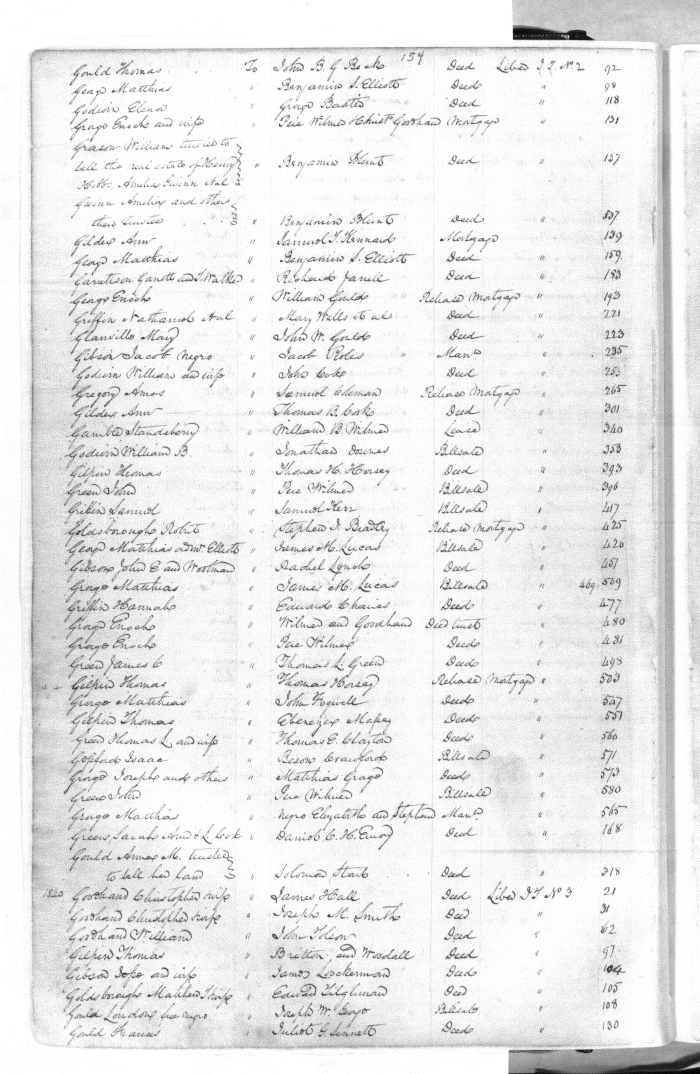 154
Gould Thomas To John B. G. Beck Deed Liber J T. No 2 92
Geage Matthias " Benjamin S. Elliott Deed " 98
Godwin Elena " George Baxter Deed " 118
Grage Enoch and wife " Pere Wilmer Christ Goodhand Mortgage " 131
Grason William trustee to
sell the real estate of Henry " Benjamin Blunt Deed " 137
Amelia Gwinn &al
Gwinn Amelia and others
their trustee " Benjamin Blunt Deed " 137
Gilder Ann " Samuel T. Kennard Mortgage " 139
Geage Matthias " Benjamin S. Elliott Deed " 159
Garretson Garrett and J. Walker " Richard Jarrell Deed " 183
George Enoch " William Gould Release Mortgage " 193
Griffin Nathaniel &al " Mary Wells et al Deed " 221
Glanville Mary " John W. Gould Deed " 223
Gibson Jacob Negro " Jacob Roles Man " 235
Godwin William and wife " John Cook Deed " 253
Gregory Amos " Samuel Coleman Release Mortgage " 265
Gilder Ann " Thomas B. Cook Deed " 301
Gamble Standsberry " William B. Wilmer Lease " 340
Godwin William B " Jonathan Downes Billsale " 353
Gilpin Thomas " Thomas H. Horsey Deed " 393
Green John " Pere Wilmer Billsale " 396
Griffin Samuel " Samuel Kerr Billsale " 417
Goldsborough Robert " Stephen J. Bradley Release Mortgage " 425
Geage Matthias adm Elliott " James M. Lucas Billsale " 426
Gibson John E and Woolman " Rachel Lynch Deed " 457
Grage Matthias " James M. Lucas Billsale " 469. 509
Griffin Hannah " Edward Chaires Deed " 477
Grage Enoch " Wilmer and Goodhand Deed trust " 480
Grage Enoch " Pere Wilmer Deed " 481
Green James C " Thomas L. Green Deed " 498
Gilpin Thomas " Thomas Horsey Release Mortgage " 503
George Matthias " John Fogwell Deed " 547
Gilpin Thomas " Ebenezer Massey Deed " 551
Green Thomas L. and wife " Thomas E. Clayton Deed " 560
Gafford Isaac " Beson Crawford Billsale " 571
Grage Joseph and others " Matthias Grage Deed " 573
Green John " Pere Wilmer Billsale " 580
Grage Matthias " Negro Elizabeth and Stephen Man " 565
Green, Sarah Ann & L. Cook " Daniel C. H. Emory Deed " 168
Gould Annex M. trustee
to sell her land " Solomon Start Deed " 318
1840 Goodhand Christopher & wife " James Hall Deed Liber J T No 3 21
Goodhand Christopher & wife " Joseph M. Smith Deed " 31
Goodhand William " John Tolson Deed " 62
Gilpin Thomas " Bratton, and Woodall Deed " 97
Gibson Jesse and wife " James Lockerman Deed " 104
Goldsborough Matthew T & wife " Edward Tilghman Deed " 105
Gould London, free negro " Joseph W. George Billsale " 108
Gould Frances " Juliet G. Sennett Deed " 130